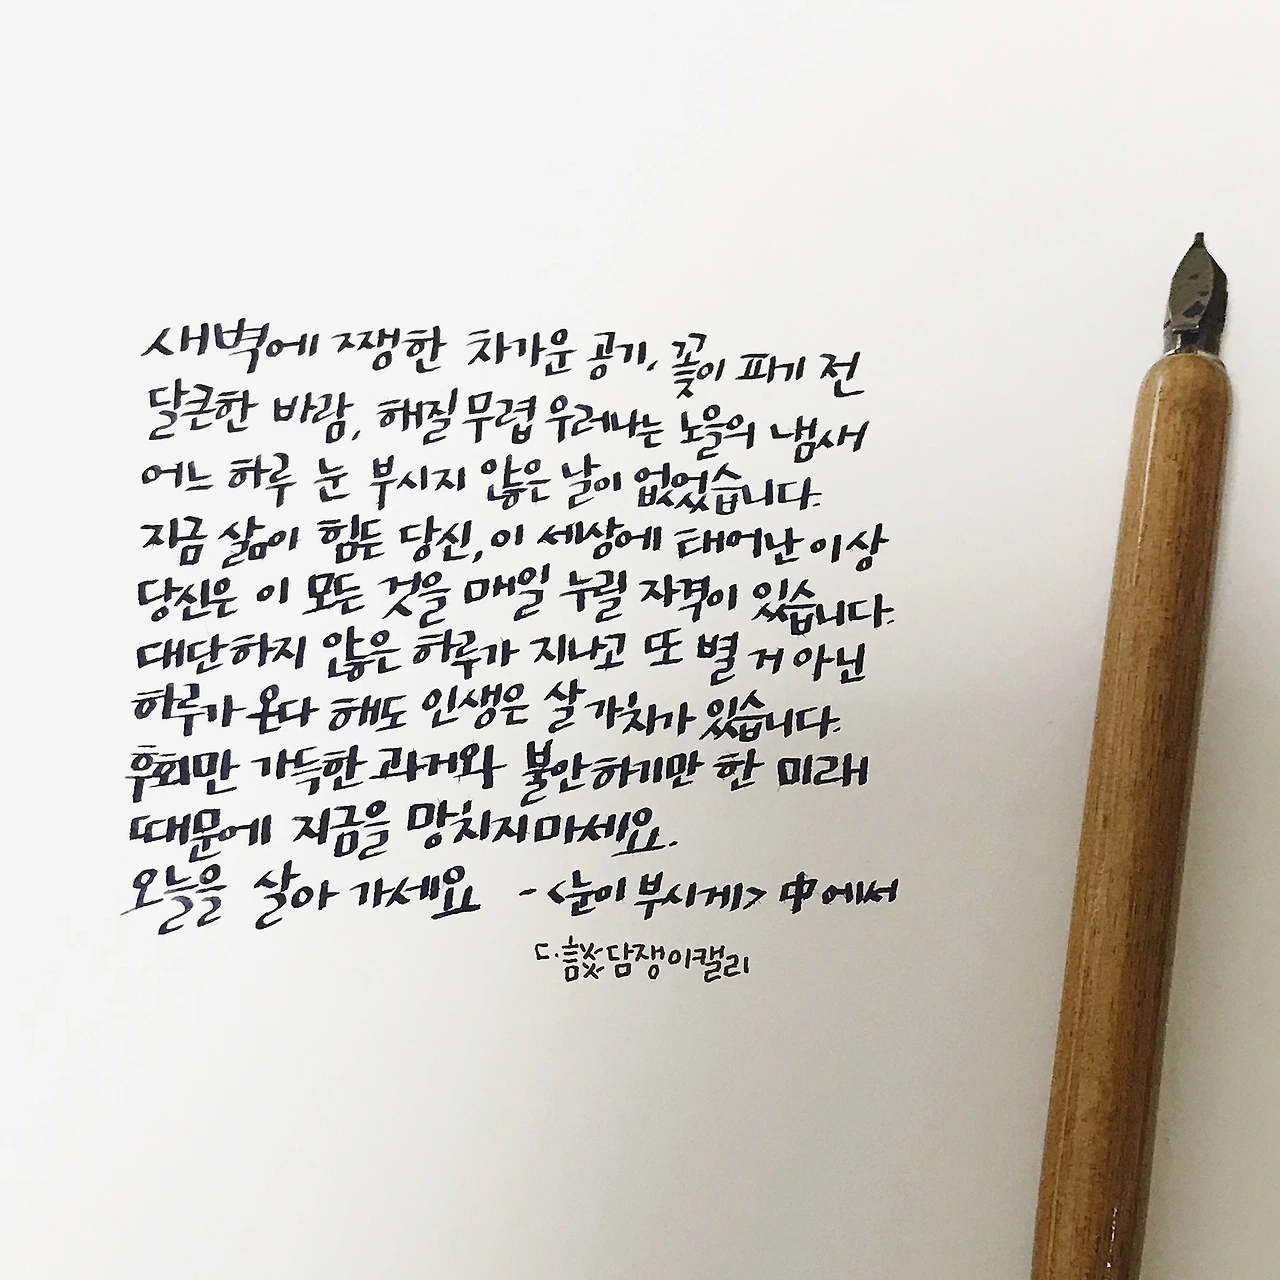 새벽에 쨍한 차가운 공기, 꽃이 피기 전
달큰한 바람, 해질무렵 우러나는 노을의 냄새
어느 하루 눈 부시지 않은 날이 없었습니다.
지금 삶이 힘든 당신, 이 세상에 태어난 이상
당신은 이 모든 것을 매일 누릴 자격이 있습니다.
대단하지 않은 하루가 지나고 또 별 거 아닌
하루가 온다 해도 인생은 살 가치가 있습니다.
후회만 가득한 과거와 불안하기만 한 미래
때문에 지금을 망치지마세요.
오늘을 살아 가세요 - <눈이 부시게> 中에서
담쟁이캘리